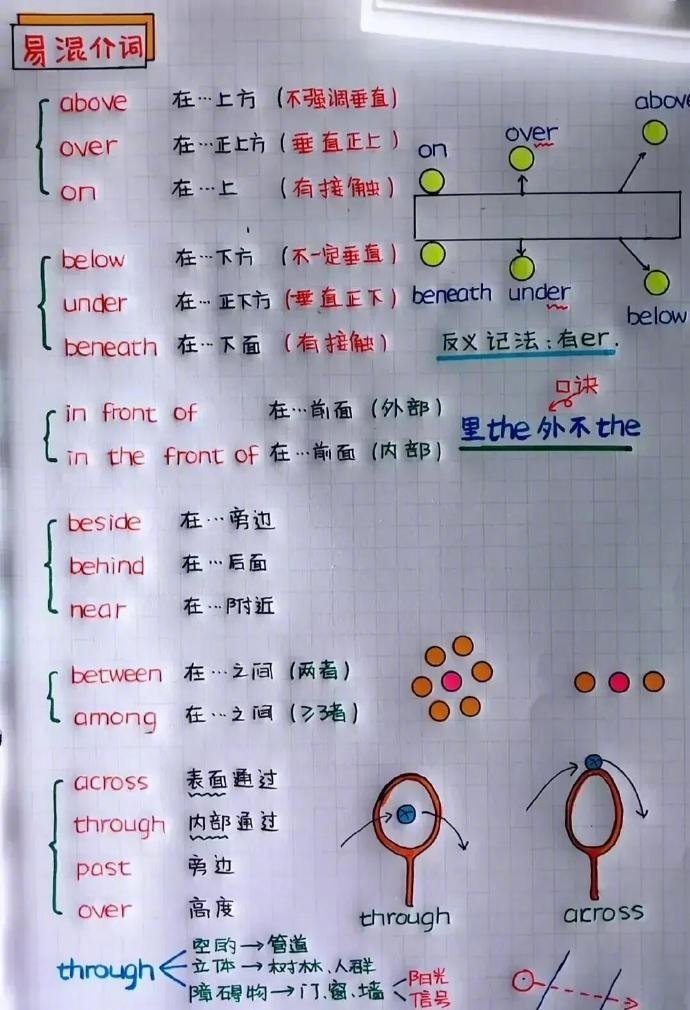 易混介词
above 在…上方 (不强调垂直)
over 在…正上方 (垂直正上)
on 在…上 (有接触)
on
over
above
beneath
under
below
below 在…下方 (不一定垂直)
under 在…正下方 (垂直正下)
beneath 在…下面 (有接触)
反义记法:有er.
in front of 在…前面 (外部)
in the front of 在…前面 (内部)
口诀
里the 外不the
beside 在…旁边
behind 在…后面
near 在…附近
between 在…之间 (两者)
among 在…之间 (≥3者)
across 表面通过
through 内部通过
past 旁边
over 高度
through
across
through
空的→管道
立体→树林、人群
障碍物→门、窗、墙
阳光
信号